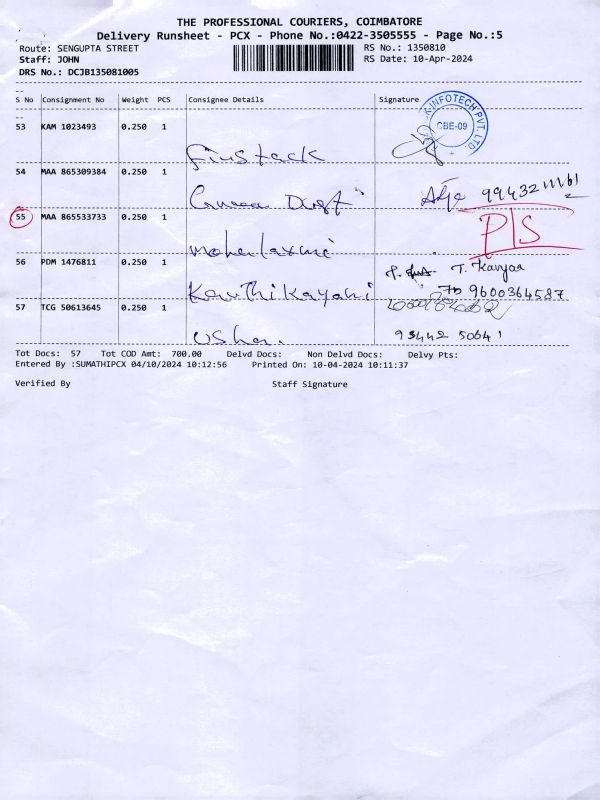 THE PROFESSIONAL COURIERS, COIMBATORE
Delivery Runsheet - PCX - Phone No.:0422-3505555 - Page No.:5
Route: SENGUPTA STREET RS No.: 1350810
Staff: JOHN RS Date: 10-Apr-2024
DRS No.: DCJB135081005
--
S No Consignment No Weight PCS Consignee Details Signature
--
53 KAM 1023493 0.250 1
Finstack
INFOTECH PVT. LTD
CBE-09
54 MAA 865309384 0.250 1
55 MAA 865533733 0.250 1
P/S
56 PDM 1476811 0.250 1
T. Kavya
9600364587
57 TCG 50613645 0.250 1
Usha.
93442 50641
Tot Docs: 57 Tot COD Amt: 700.00 Delvd Docs: Non Delvd Docs: Delvy Pts:
Entered By :SUMATHIPCX 04/10/2024 10:12:56 Printed On: 10-04-2024 10:11:37
Verified By Staff Signature